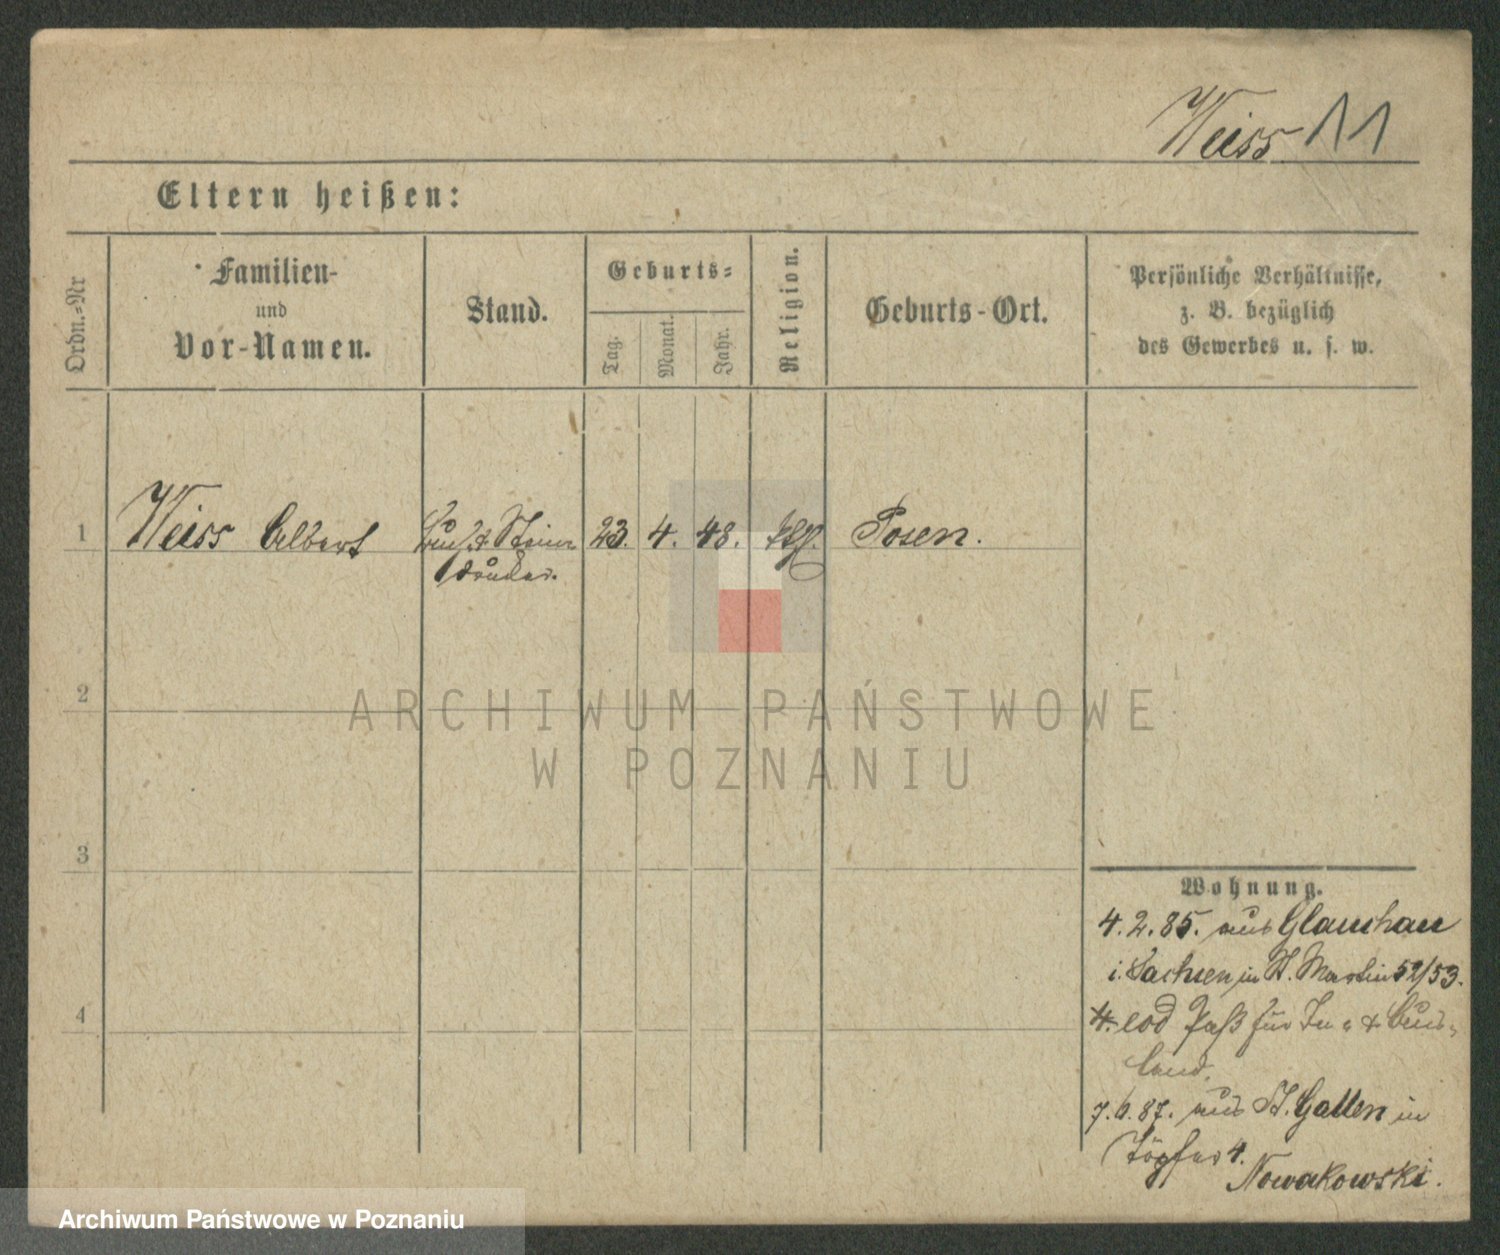 Weiss 11
Eltern heißen:
Ordn.-Nr
Familien-
und
Vor-Namen.
Stand.
Geburts-
Tag.
Monat.
Jahr.
Religion.
Geburts-Ort.
Persönliche Verhältnisse,
z. B. bezüglich
des Gewerbes u. s. w.
1 Weiss Albert Buch & Stein- 23. 4. 48. kth. Posen.
drucker.
2
3
4
Wohnung.
4. 2. 85. aus Glauchau
i. Sachsen in St. Martin 52/53.
4. eod Paß für In- & Aus-
land.
7. 6. 87. aus St. Gallen in
Töpfer 4.
Nowakowski.
ARCHIWUM PAŃSTWOWE
W POZNANIU
Archiwum Państwowe w Poznaniu